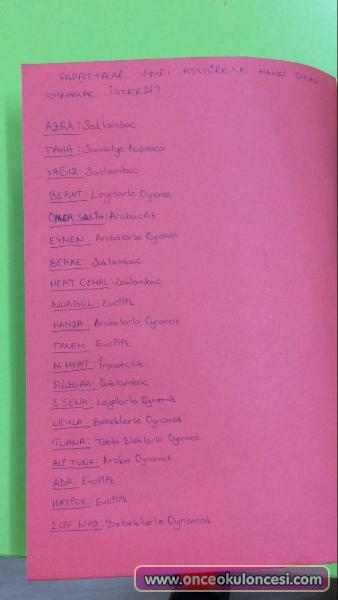 PAPATYALAR SINIFI ATATÜRK'LE HANGİ OYUNU
OYNAMAK İSTERDİ?
AZRA: Saklambaç
TAHA: Sandalye Kapmaca
YAĞIZ: Saklambaç
BERAT: Legolarla Oynamak
ÖMER SALİH: Arabacılık
EYMEN: Arabalarla Oynamak
BERKE: Saklambaç
MERT CEMAL: Saklambaç
NURGÜL: Evcilik
HAMZA: Arabalarla Oynamak
TANEM: Evcilik
M.MERT: İnşaatçılık
RÜZGAR: Saklambaç
E.SENA: Legolarla Oynamak
LEYLA: Bebeklerle Oynamak
TUANA: Tahta Bloklarla Oynamak
ALP TUNA: Araba Oynamak
ADA: Evcilik
HATİCE: Evcilik
ELİF NAZ: Bebeklerle Oynamak
www.onceokuloncesi.com